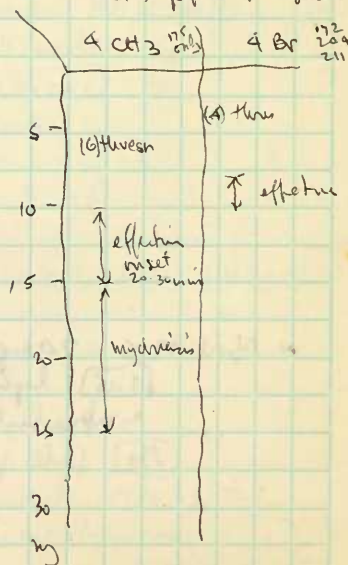 4 CH3 175 only 4 Br 172
204
211
5 (6) thresh (4) thres
10 effective
effective
onset
15 20-30 min
mydriasis
20
25
30
mg